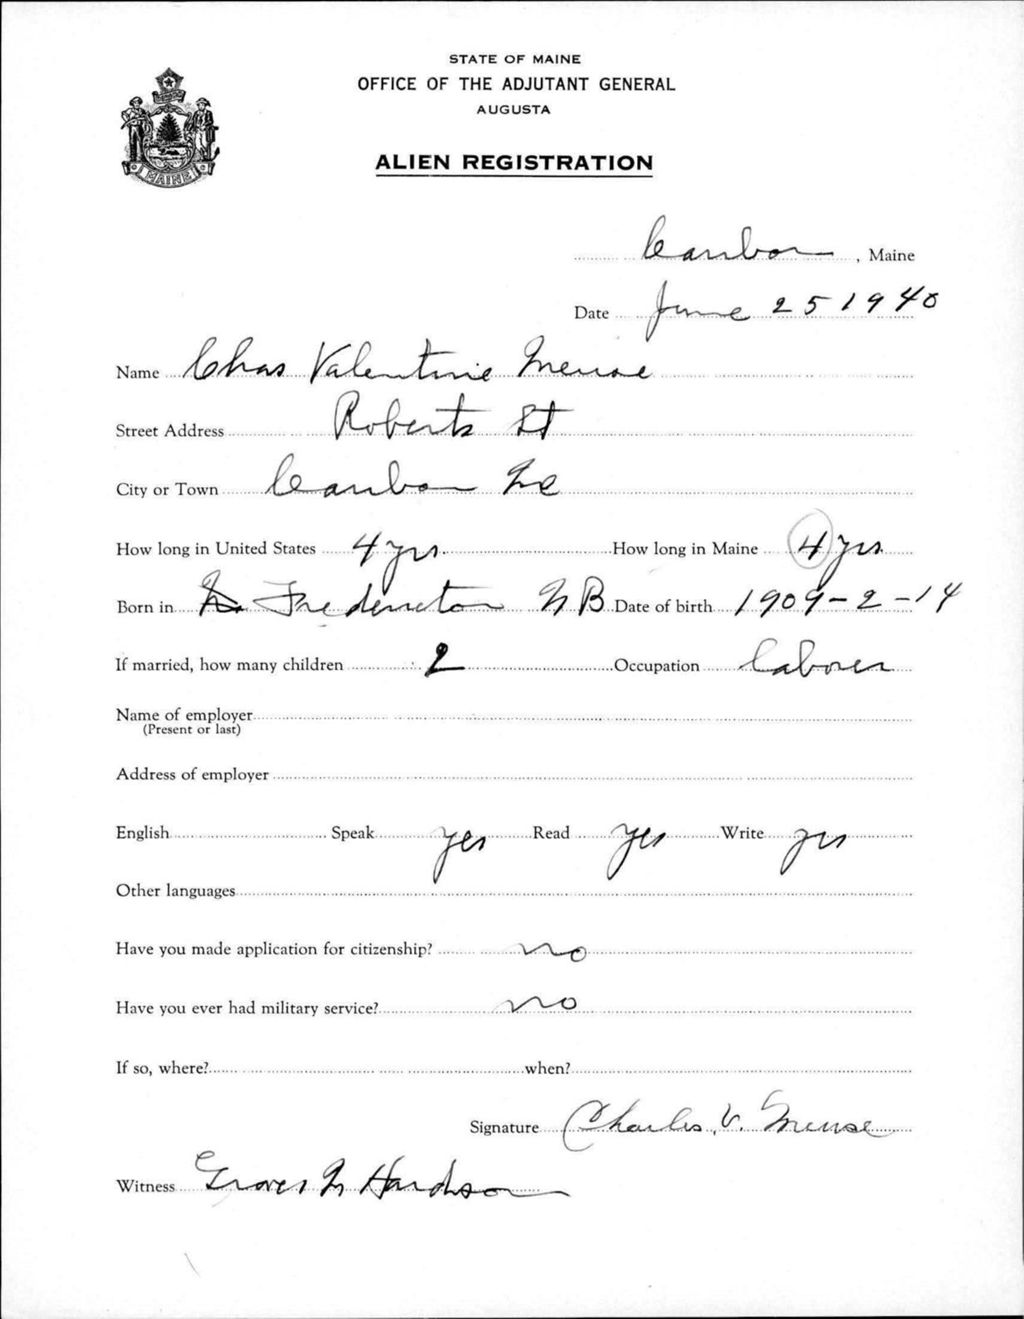 STATE OF MAINE
OFFICE OF THE ADJUTANT GENERAL
AUGUSTA
MAINE
ALIEN REGISTRATION
Caribou, Maine
Date June 25 1940
Name Chas Valentine Meuse
Street Address Roberts St
City or Town Caribou Me
How long in United States 4 yrs How long in Maine 4 yrs
Born in Fredericton N B Date of birth 1909-2-14
If married, how many children 2 Occupation Laborer
Name of employer
(Present or last)
Address of employer
English Speak yes Read yes Write yes
Other languages
Have you made application for citizenship? no
Have you ever had military service? no
If so, where? when?
Signature Charles V. Meuse
Witness Grover M Hardison